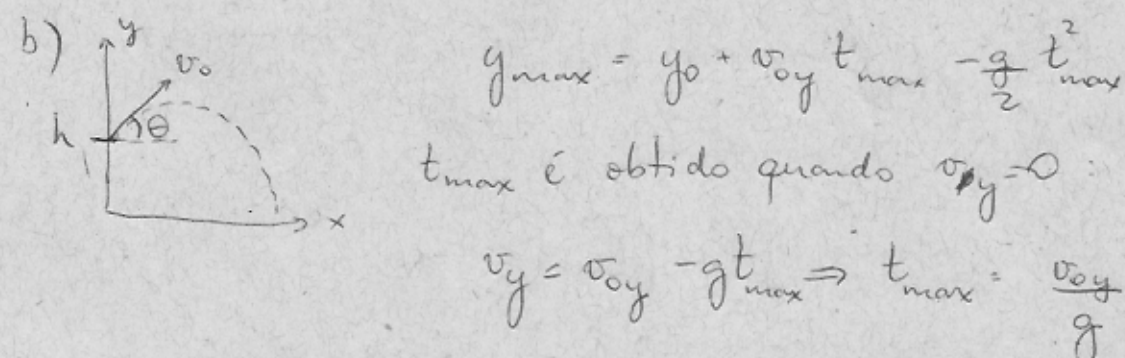 b)
y
v₀
h
θ
x
y_max = y₀ + v₀y t_max - g/2 t²_max
t_max é obtido quando v_y = 0 :
v_y = v₀y - g t_max ⇒ t_max = v₀y/g